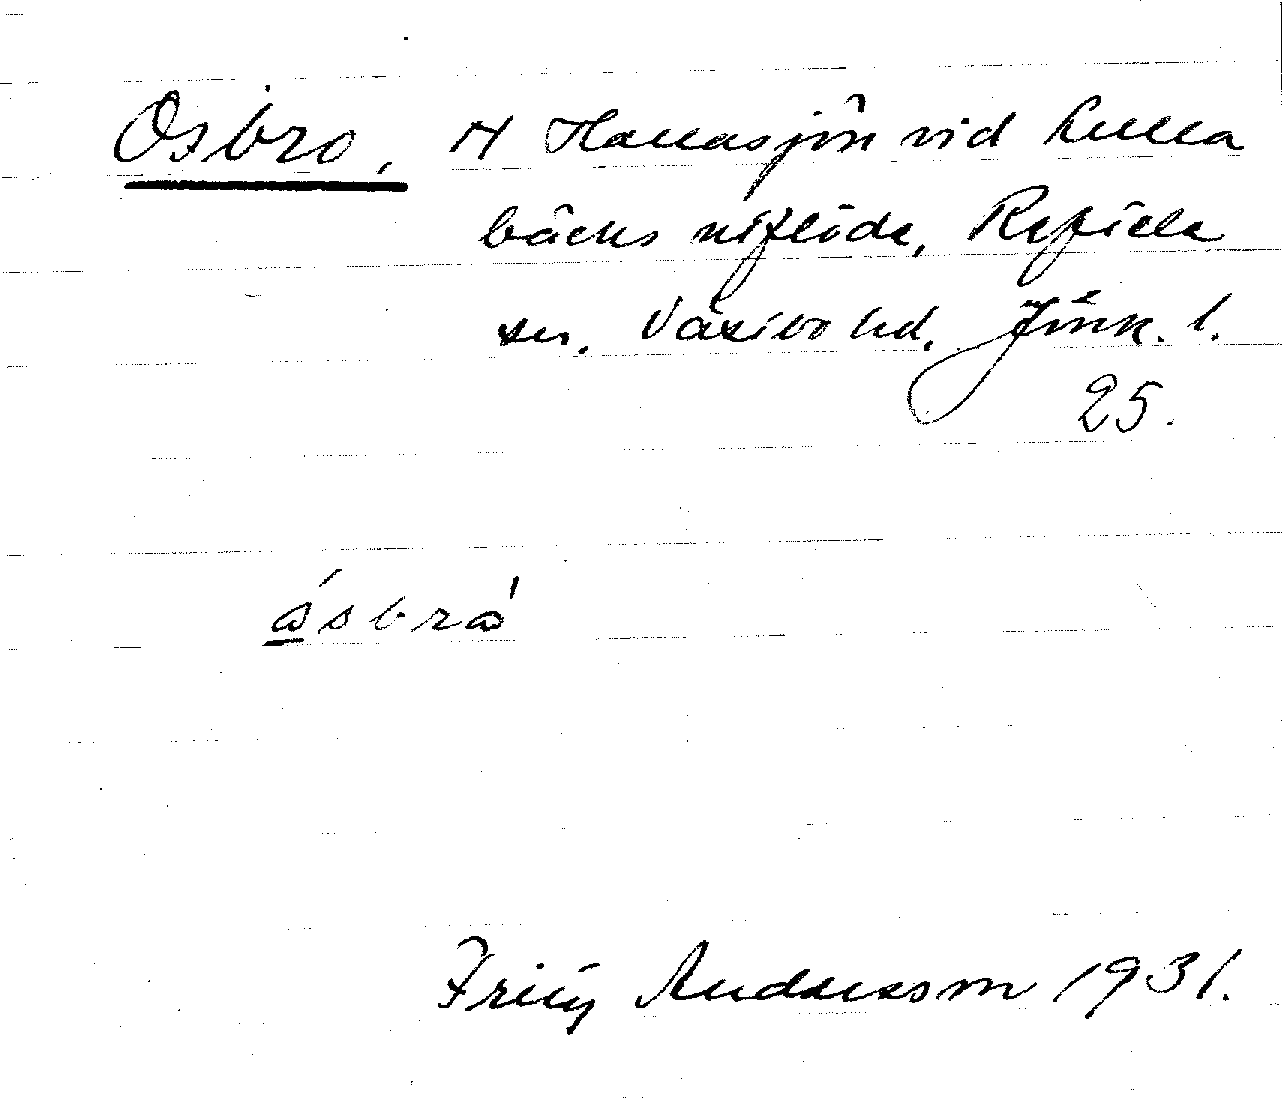 Osbro, H Hallasjön vid Lilla
bäcks utflöde, Reftele
sn. Västbo hd. Jönk. l.
25.
åsbrå
Fritz Andersson 1931.